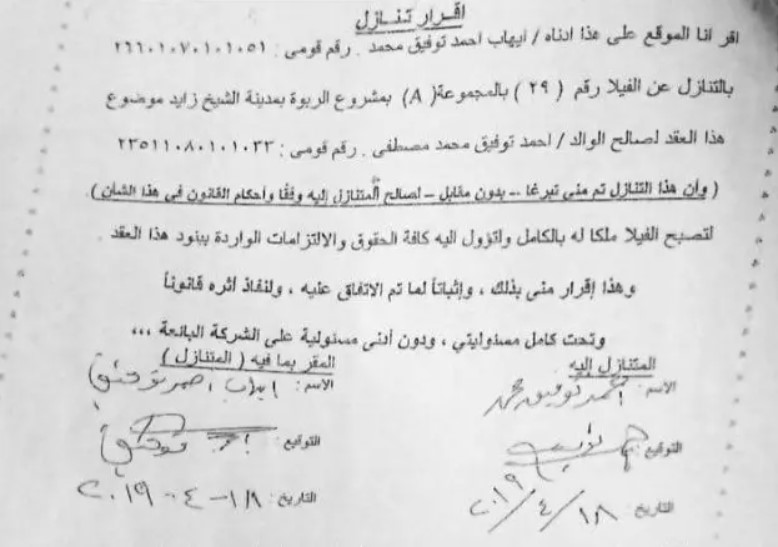 اقـرار تنـازل
اقر انا الموقع على هذا ادناه / ايهاب احمد توفيق محمد . رقم قومى : ٢٦٦٠١٠٧٠١٠١٠٥١
بالتنازل عن الفيلا رقم ( ٢٩ ) بالمجموعة ( A ) بمشروع الربوة بمدينة الشيخ زايد موضوع
هذا العقد لصالح الوالد / احمد توفيق محمد مصطفى . رقم قومى : ٢٣٥١١٠٨٠١٠١٠٣٣
( وأن هذا التنازل تم منى تبرعا -- بدون مقابل – لصالح المتنازل إليه وفقا وأحكام القانون فى هذا الشأن ) .
لتصبح الفيلا ملكا له بالكامل ولتؤول اليه كافة الحقوق والالتزامات الواردة ببنود هذا العقد .
وهذا إقرار منى بذلك ، وإثباتاً لما تم الاتفاق عليه ، ولنفاذ أثره قانوناً
وتحت كامل مسئوليتي ، ودون أدنى مسئولية على الشركة البائعة ،،،
المتنازل إليه
الاسم : احمد توفيق محمد
التوقيع :
التاريخ : ١٨ / ٤ / ٢٠١٩
المقر بما فيه ( المتنازل )
الاسم : ايهاب احمد توفيق
التوقيع : توفيق
التاريخ : ١٨ - ٠٤ - ٢٠١٩